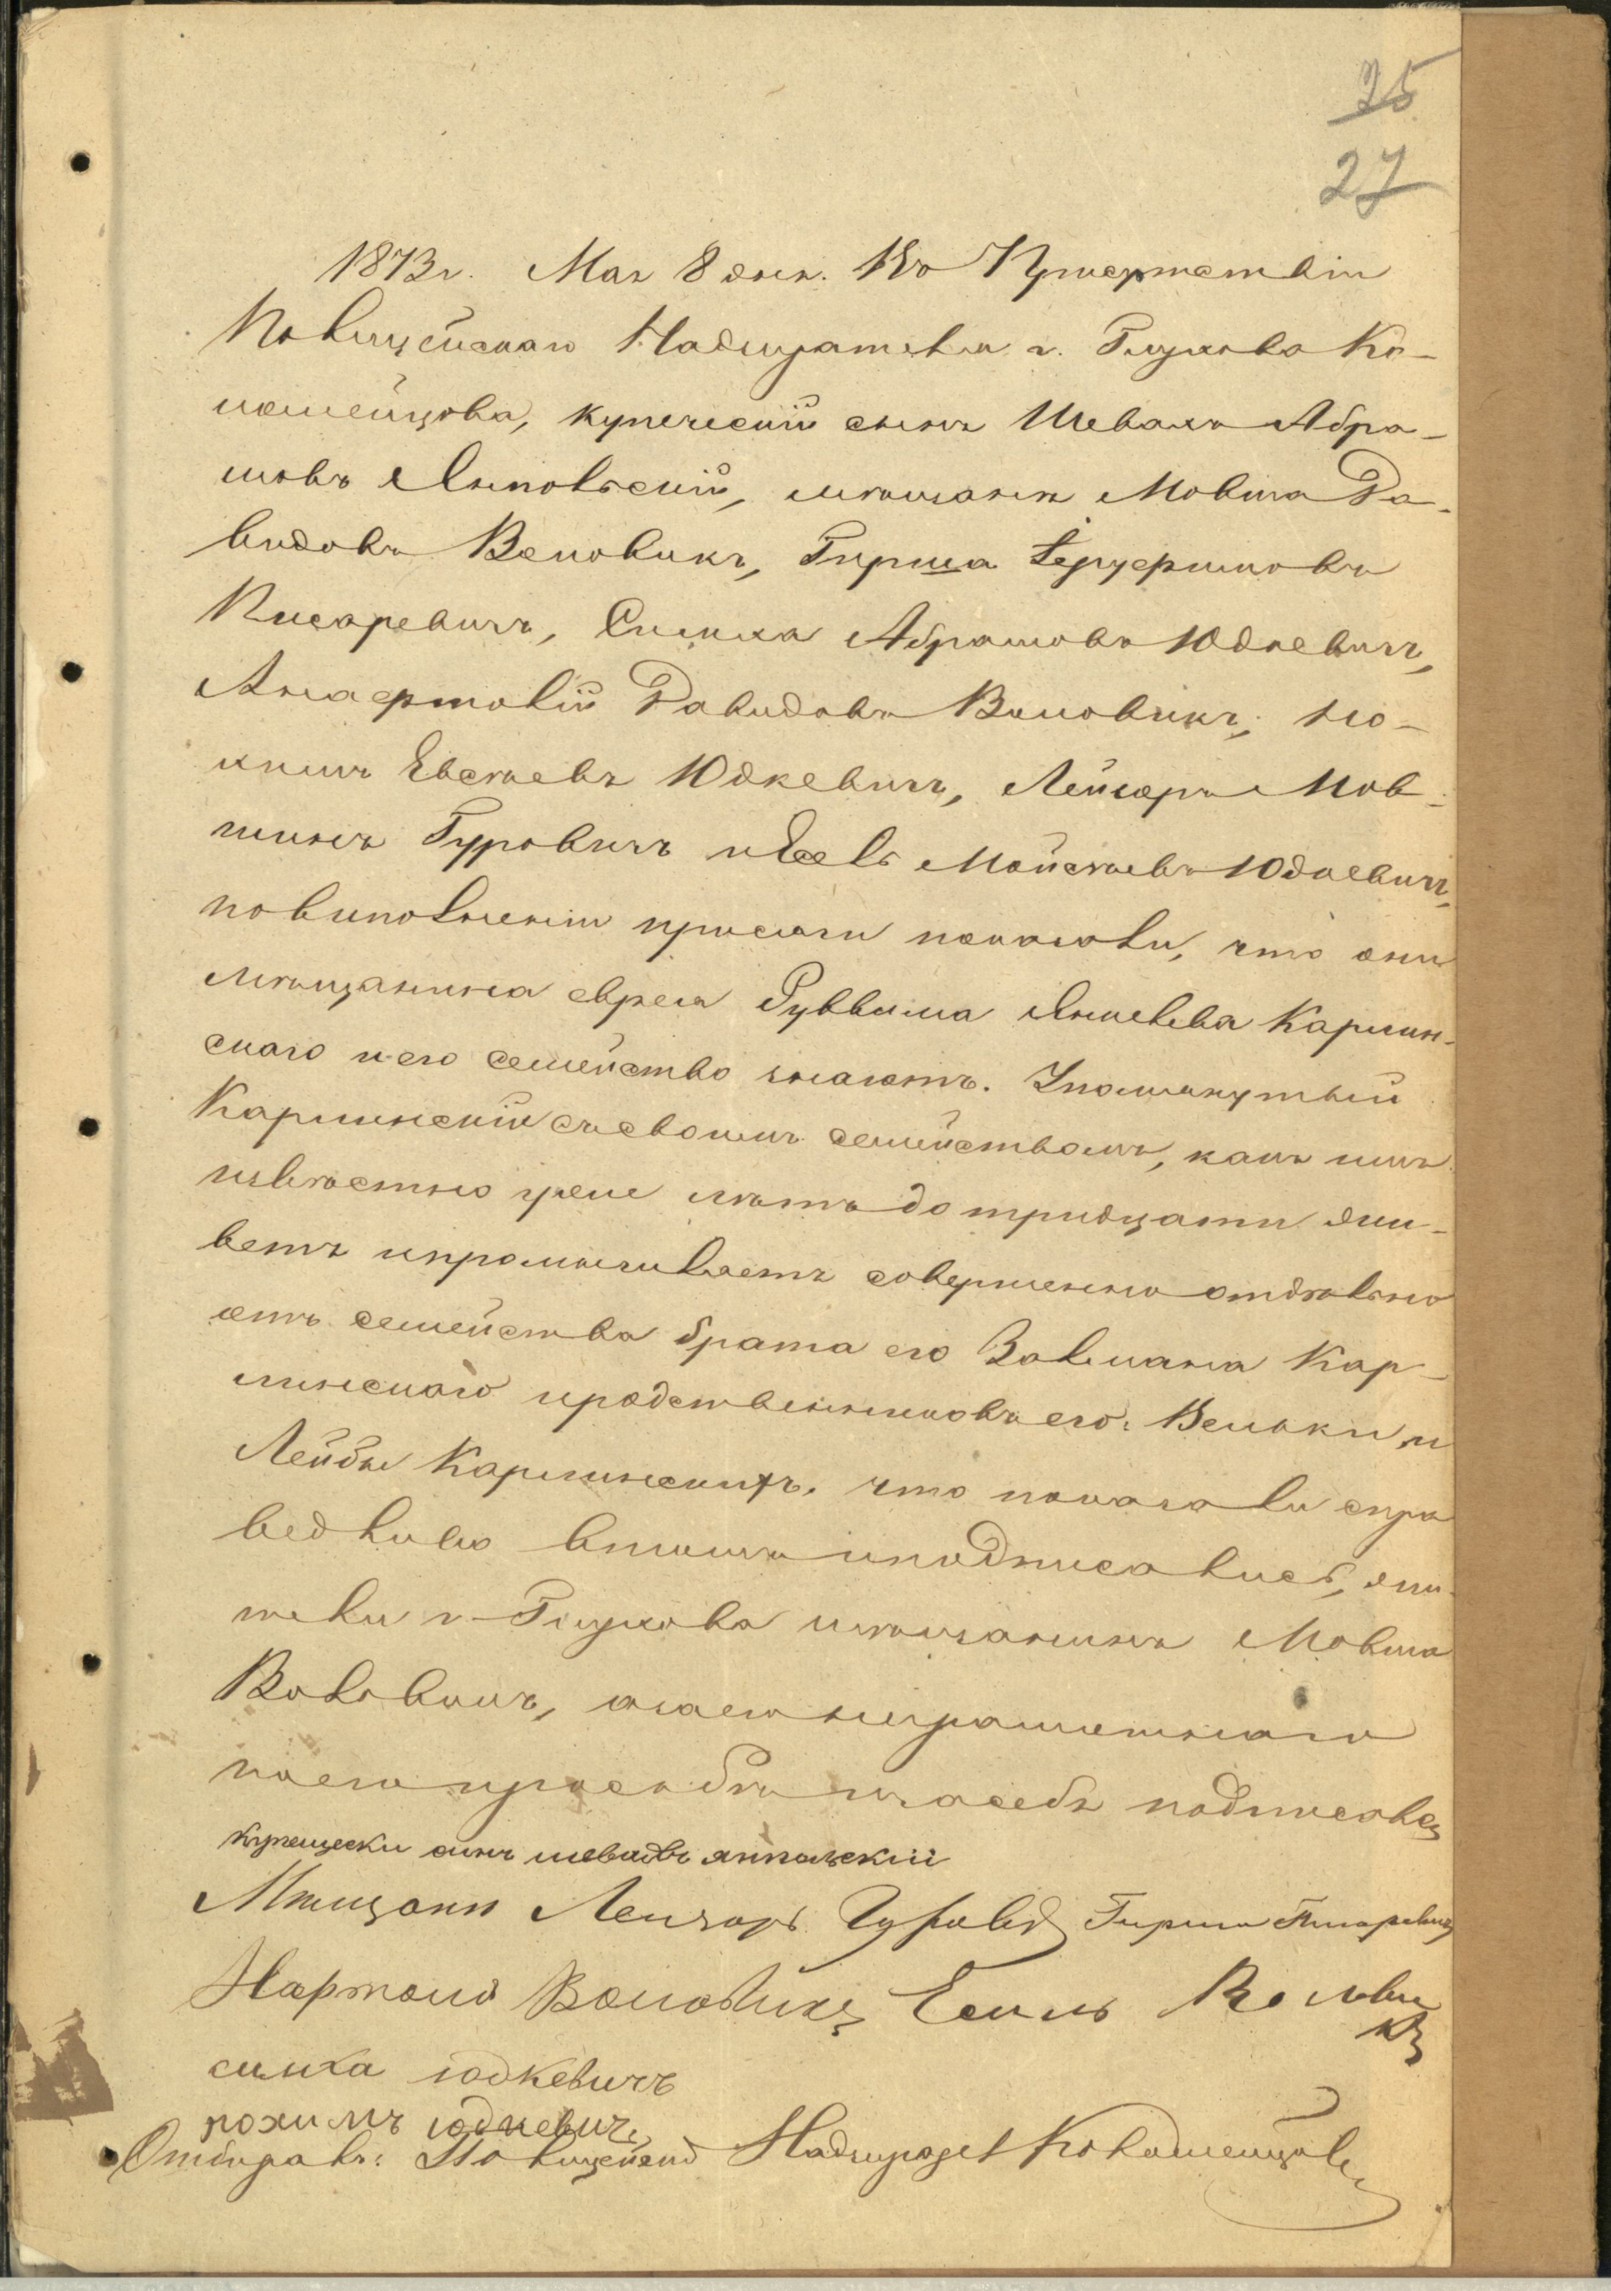 25
27
1873 г. Мая 8 дня. Въ Присутствіи
Полицейскаго Надзирателя г. Глухова Ко-
ломейцова, купеческій сынъ Шевахъ Абра-
мовъ Ямпольскій, мѣщане Мовша Да-
видовъ Воловикъ, Гирша
Писаревичъ, Симха Абрамовъ Юдкевичъ,
Давидовъ Воловикъ, но-
химъ Евсѣевъ Юдкевичъ, Лейзеръ Мов-
шинъ Гуровичъ и Евсѣевъ Юдкевичъ,
по выполненіи присяги показали, что они
мѣщанина еврея Руввима Карлин-
скаго и его семейство знаютъ. Упомянутый
Карлинскій съ своимъ семействомъ, какъ имъ
извѣстно уже лѣтъ до тридцати жи-
ветъ и промышляетъ совершенно отдѣльно
отъ семейства брата его Залмана Кар-
линскаго и родственниковъ его: Вольки и
Лейбы Карлинскихъ. что показали спра
ведливо в томъ и подписались, жи-
тели г. Глухова мѣщанинъ Мовша
Воловикъ, а за его неграмотнаго
по его прозьбѣ и за себя подписалъ
купецески сынъ шевахъ ямпольскій
Мѣщани Лейзоръ Гуровичъ Гирша Писаревичъ
Нартолъ Воловикъ Воловикъ
симха юдкевичъ
нохимъ юдкевичъ
Отбиралъ: Полицейскій Надзиратель Коломейцовъ